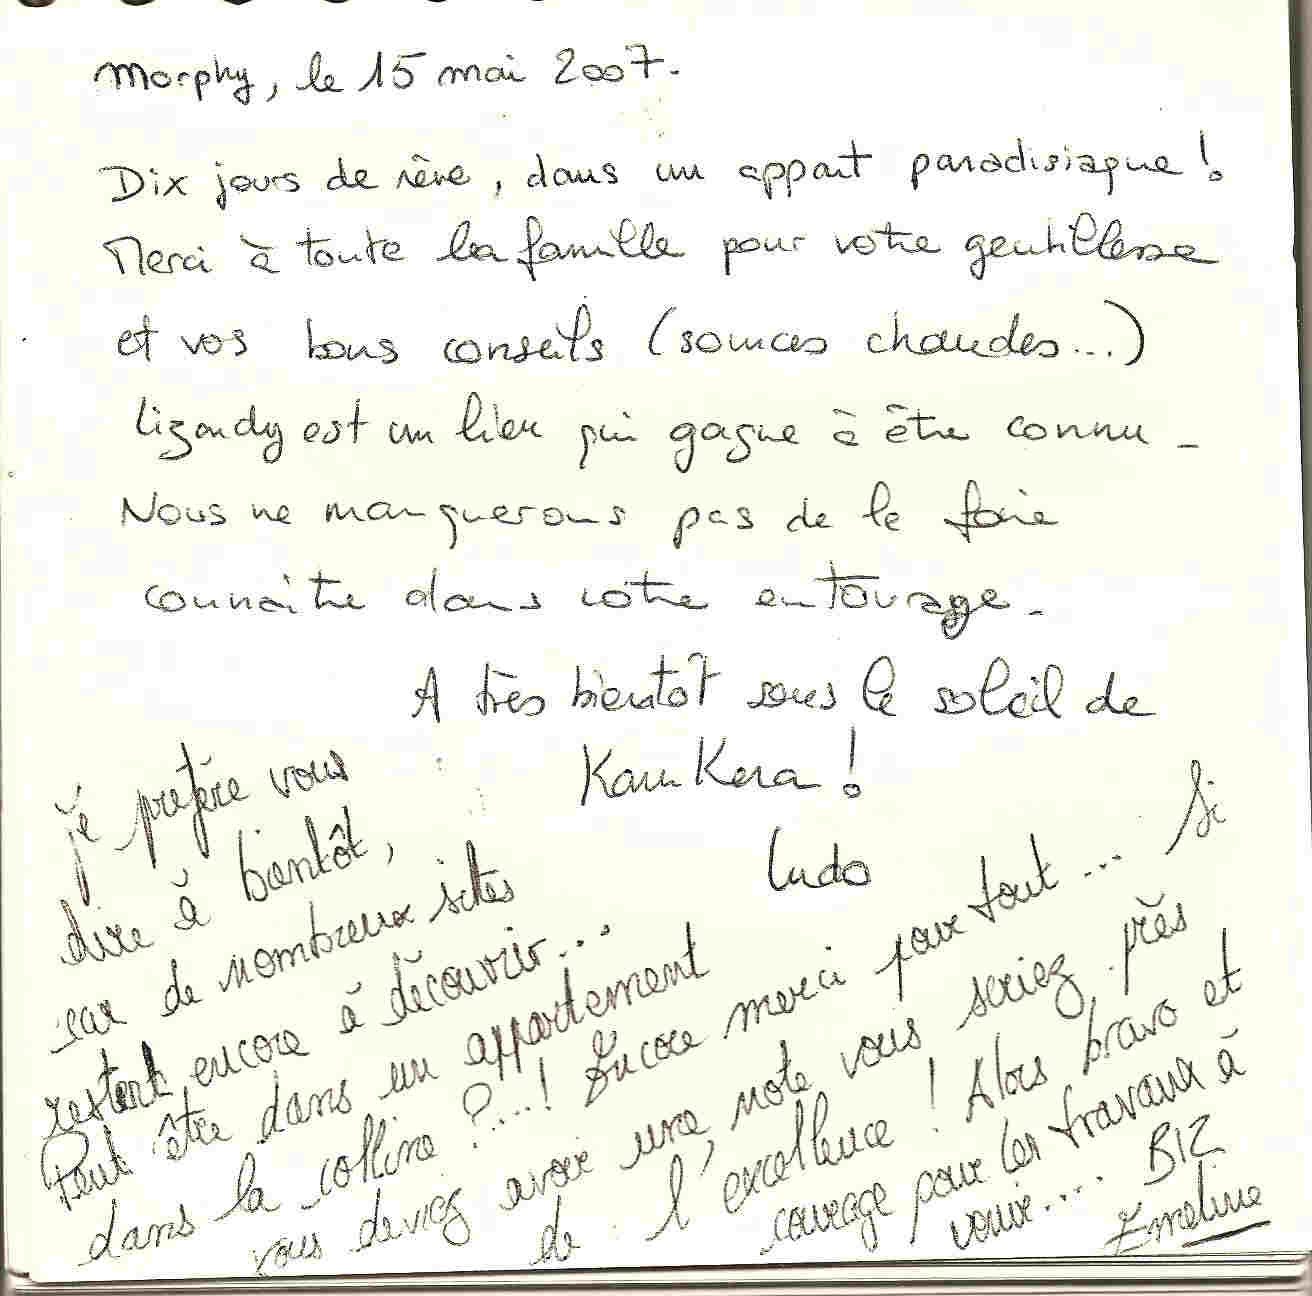 Morphy, le 15 mai 2007.
Dix jours de rêve, dans un appart paradisiaque !
Merci à toute la famille pour votre gentillesse
et vos bons conseils (sources chaudes...)
Lizardy est un lieu qui gagne à être connu -
Nous ne manquerons pas de le faire
connaître dans votre entourage.
A très bientôt sous le soleil de
KaruKera !
Ludo
je préfère vous
dire à bientôt,
car de nombreux sites
restent encore à découvrir...
Peut être dans un appartement
dans la colline ?...! Encore merci pour tout... Si
vous deviez avoir une note vous seriez près
de l'excellence ! Alors bravo et
courage pour les travaux à
venir.... BIZ
Emeline